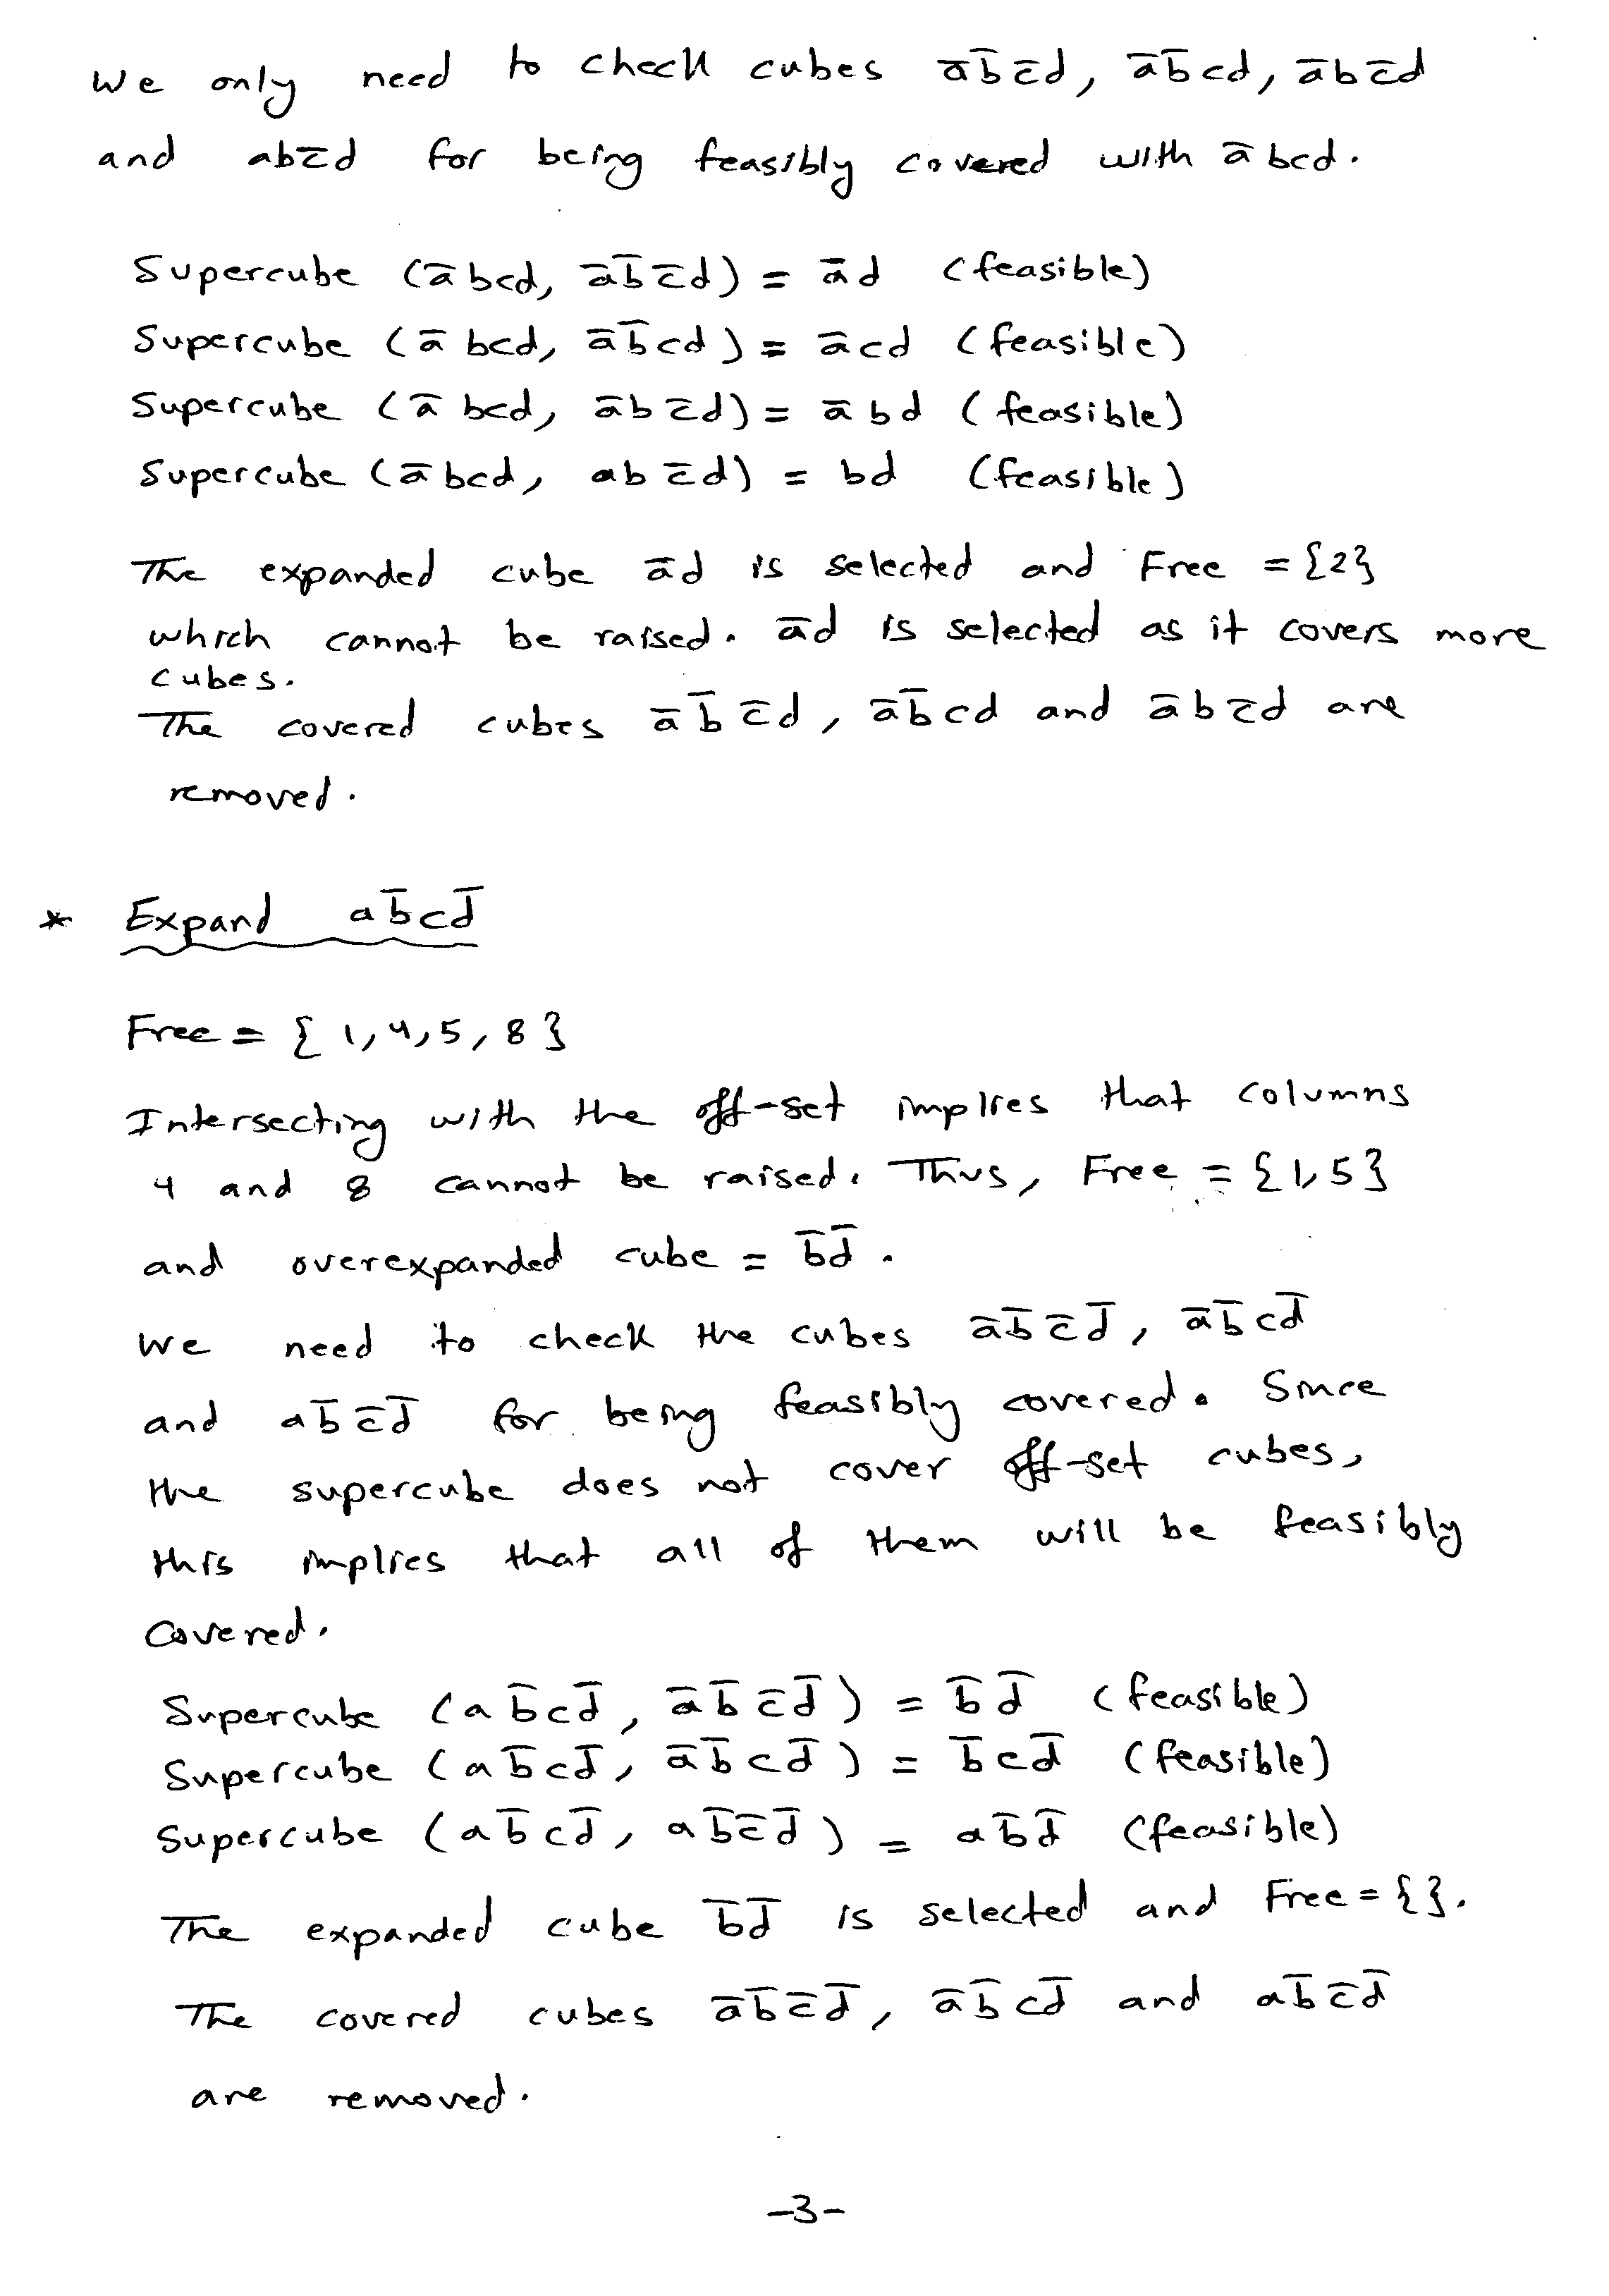 We only need to check cubes a̅b̅c̅d, a̅b̅cd, a̅bc̅d
and abc̅d for being feasibly covered with a̅bcd.
Supercube (a̅bcd, a̅b̅c̅d) = a̅d (feasible)
Supercube (a̅bcd, a̅b̅cd) = a̅cd (feasible)
Supercube (a̅bcd, a̅bc̅d) = a̅bd (feasible)
Supercube (a̅bcd, abc̅d) = bd (feasible)
The expanded cube a̅d is selected and Free = {2}
which cannot be raised. a̅d is selected as it covers more
cubes.
The covered cubes a̅b̅c̅d, a̅b̅cd and a̅bc̅d are
removed.
* Expand ab̅cd̅
Free = {1,4,5,8}
Intersecting with the off-set implies that columns
4 and 8 cannot be raised. Thus, Free = {1,5}
and overexpanded cube = b̅d̅.
We need to check the cubes a̅b̅c̅d̅, a̅b̅cd̅
and ab̅c̅d̅ for being feasibly covered. Since
the supercube does not cover off-set cubes,
this implies that all of them will be feasibly
covered.
Supercube (ab̅cd̅, a̅b̅c̅d̅) = b̅d̅ (feasible)
Supercube (ab̅cd̅, a̅b̅cd̅) = b̅cd̅ (feasible)
Supercube (ab̅cd̅, ab̅c̅d̅) = ab̅d̅ (feasible)
The expanded cube b̅d̅ is selected and Free = {}.
The covered cubes a̅b̅c̅d̅, a̅b̅cd̅ and ab̅c̅d̅
are removed.
-3-